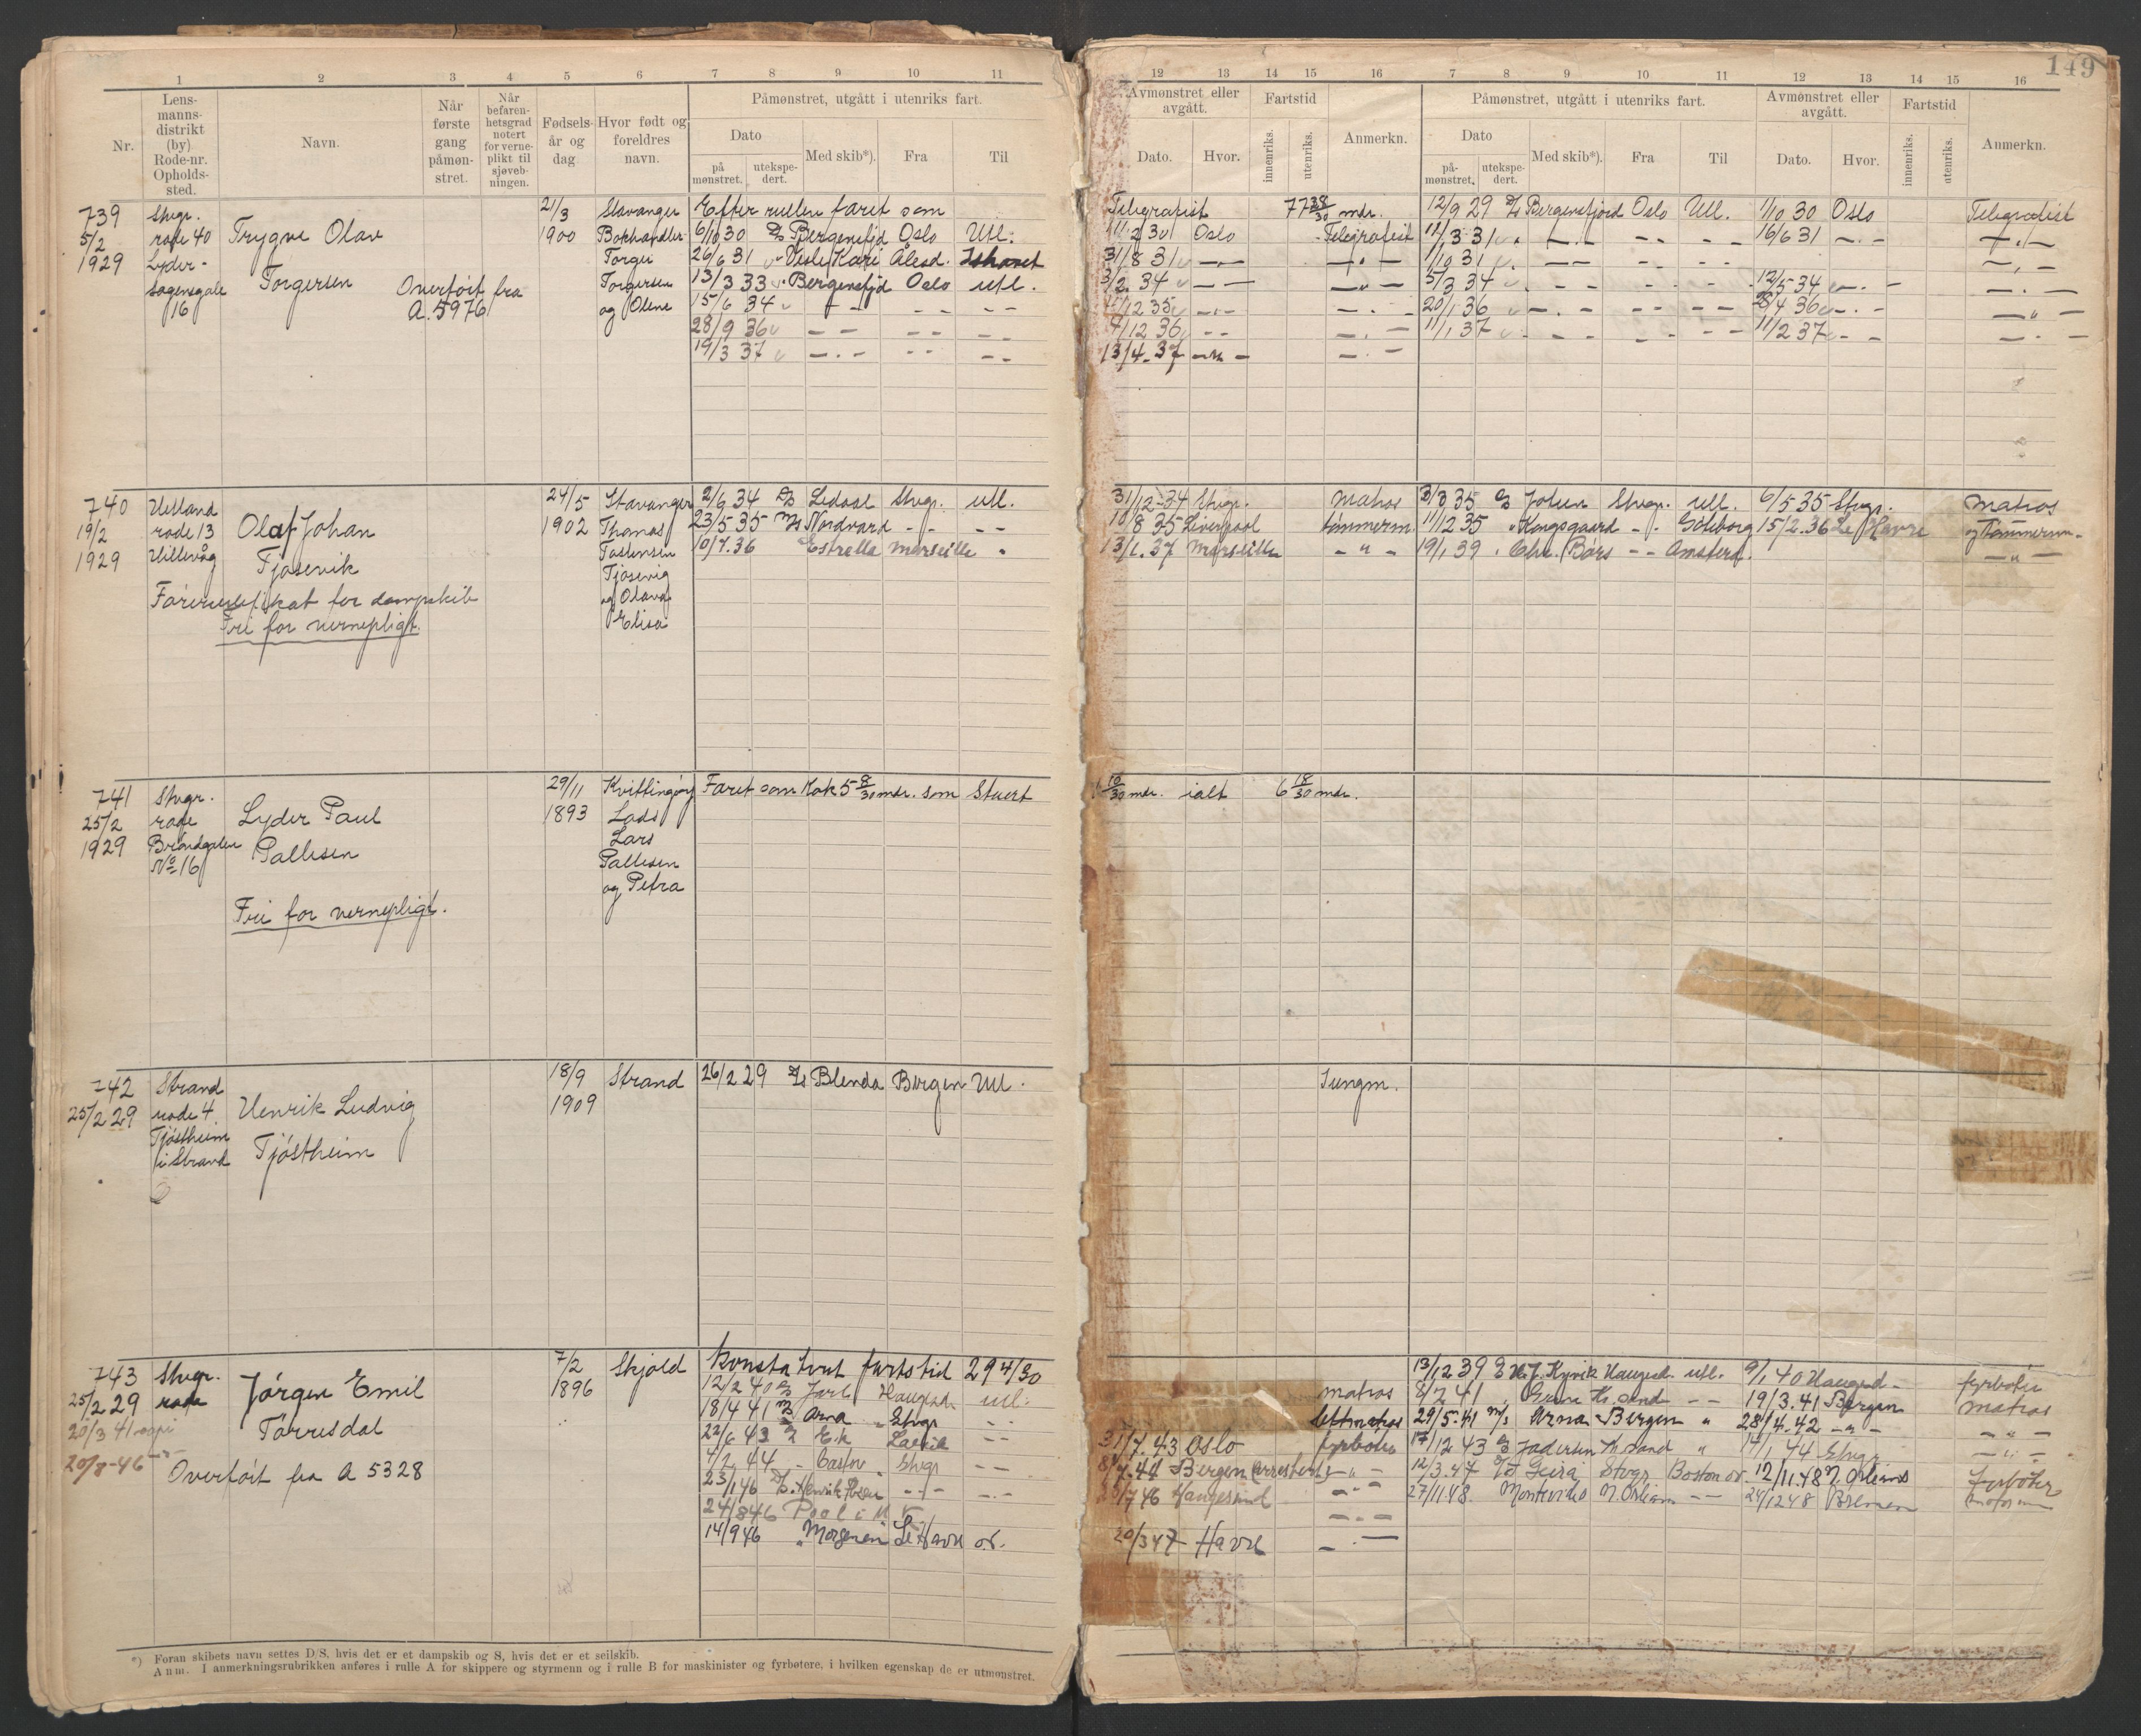 149
1 2 3 4 5 6 7 8 9 10 11
Nr.
Lens-
manns-
distrikt
(by)
Rode-nr.
Opholds-
sted.
Navn.
Når
første
gang
påmøn-
stret.
Når
befaren-
hetsgrad
notert
for verne-
plikt til
sjøveb-
ningen.
Fødsels-
år og
dag
Hvor født og
foreldres
navn.
Påmønstret, utgått i utenriks fart.
Dato
på
mønstret.
utekspe-
dert.
Med skib*).
Fra
Til
12 13 14 15 16 7 8 9 10 11 12 13 14 15 16
Avmønstret eller
avgått.
Dato.
Hvor.
Fartstid
innenriks.
utenriks.
Anmerkn.
Påmønstret, utgått i utenriks fart.
Dato
på-
mønstret.
utekspe-
dert.
Med skib*).
Fra
Til
Avmønstret eller
avgått.
Dato.
Hvor.
Fartstid
innenriks.
utenriks.
Anmerkn.
739
5/2
1929
Stvgr.
rode 40
Lyder-
Sagensgate
16
Trygve Olav
Torgersen
Overført fra
A. 5976
21/3
1900
Stavanger
Bokhandler
Torger
Torgersen
og Olene
Efter rullen faret som
6/10 30 D/S Bergensfjd Oslo Utl.
26/6 31 " Vesle Kari Ålesd. Ishavet
13/3 33 " Bergensfjd Oslo utl.
15/6 34 – – – – – –
28/9 36 – – – – – –
19/3 37 – . – – – – –
Telegrafist 77 28/30 mdr. 12/9 29 D/S Bergensfjord Oslo Utl. 1/10 30 Oslo Telegrafist
Oslo Telegrafist 16/6 31 – . –
31/8 31 – . – – " – 1/10 31
3/2 34 – – – " – 5/3 34 12/5 34
20/1 36 28/4 36
11/1 37 11/2 37
13/4 37 – " –
740
19/2
1929
Hetland
rode 13
Hillevåg
Olaf Johan
Tjosevik
Førercertifikat for dampskib
Fri for vernepligt.
24/5
1902
Stavanger
Thomas
Tostensen
Tjosevig
og Olava
Elisa
2/6 34 D/S Ledaal Stvgr. utl.
23/5 35 M/S Nordvard – – – –
10/7 36 Estrella Marseille "
31/12-34 Stvgr. Matros 3/3 35 Johen Stvgr. utl. 6/5 35 Stvgr. Matros
10/8 35 Liverpool tømmerm. 11/12 35 " Kongsgaard – . Göteborg 15/2 36 Le Havre og Tømmerm.
13/1 37 Marseille – " – 19/1 39 . Chr. Børs – – Amsterd. – " –
741
25/2
1929
Stvgr.
rode
Brøndgaten
No 16
Lyder Paul
Pallesen
Fri for vernepligt.
29/11
1893
Kvittingsøy
Lods
Lars
Pallesen
og Petra
Faret som Kok 5 8/30 mdr. som Stuert
1 10/30 mdr. ialt 6 18/30 mdr.
742
25/2 29
Strand
rode 4
Tjøstheim
i Strand
Henrik Ludvig
Tjøstheim
18/9
1909
Strand
26/2 29 D/S Blenda Bergen Utl.
Jungm.
743
25/2 29
20/3 41
20/8-46
Stvgr.
rode
Jørgen Emil
Tørresdal
Overført fra A 5328
7/2
1896
Skjold
Konstatert fartstid 29 4/30
12/2 40 D/S Jarl Haugesd. utl.
18/4 41 M/S Arna " Stvgr – –
22/6 43 Eik Larvik – –
4/2 44 – Castor Stvgr – –
23/1 46 D/S Henrik Ibsen – – – –
24/8 46 Pool i
14/9 46 " Morgenen Le Havre o.v.
13/12 39 H. J. Kyvik Haugesd. utl. 9/1 40 Haugesd. fyrbøter
matros 8/2 41 Kr. sand – – 19/3 41 Bergen matros
lettmatros 29/5-41 M/S Arna Bergen " 28/4-42 – " – – " –
31/7.43 Oslo fyrbøter 17/12 43 Jaderen Kr.sand " 14/1 44 Stvgr – " –
Bergen (arrestert) – " – 12/3-47 Geira Stvgr Boston ov. 12/11 48 N. Orleans fyrbøter
46 Haugesund 27/11 48. Montevideo N. Orleans – – 24/12 48 Bremen motorm
20/3 47 Havre
*) Foran skibets navn settes D/S, hvis det er et dampskib og S, hvis det er et seilskib.
Anm. I anmerkningsrubrikken anføres i rulle A for skippere og styrmenn og i rulle B for maskinister og fyrbøtere, i hvilken egenskap de er utmønstret.